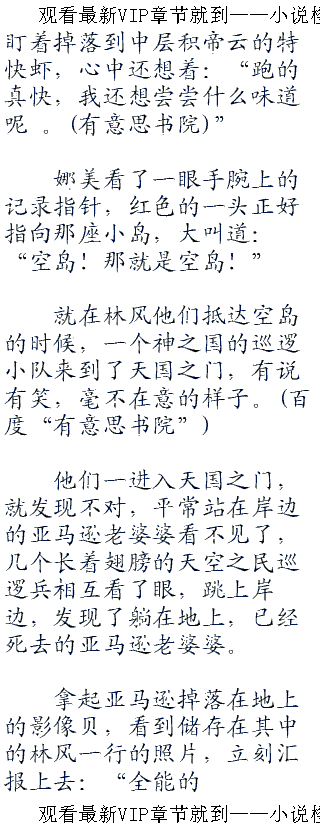 观看最新VIP章节就到——小说检
盯着掉落到中层积帝云的特
快虾，心中还想着：“跑的
真快，我还想尝尝什么味道
呢 。(有意思书院)”
娜美看了一眼手腕上的
记录指针，红色的一头正好
指向那座小岛，大叫道：
“空岛！那就是空岛！”
就在林风他们抵达空岛
的时候，一个神之国的巡逻
小队来到了天国之门，有说
有笑，毫不在意的样子。(百
度“有意思书院”)
他们一进入天国之门，
就发现不对，平常站在岸边
的亚马逊老婆婆看不见了，
几个长着翅膀的天空之民巡
逻兵相互看了眼，跳上岸
边，发现了躺在地上，已经
死去的亚马逊老婆婆。
拿起亚马逊掉落在地上
的影像贝，看到储存在其中
的林风一行的照片，立刻汇
报上去：“全能的
观看最新VIP章节就到——小说检